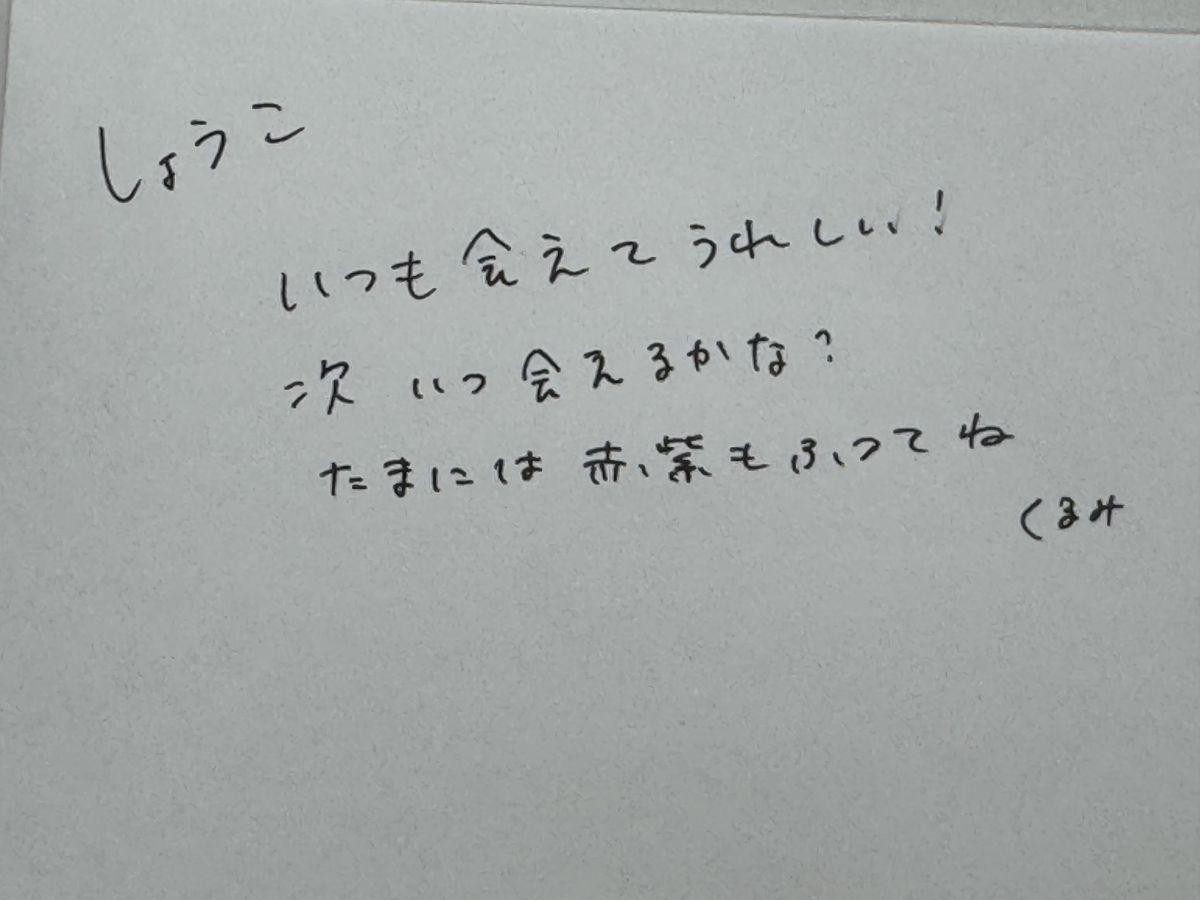 しょうこ
いつも会えてうれしい!
次 いつ会えるかな?
たまには赤、紫もふってね
くるみ